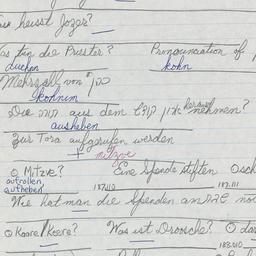 heisst Jozer?
tun die Priester? Pronounciation of
duchan kohn
Mehrzahl von כהן
kohnim
Die תורה aus dem ארון קודש herausnehmen?
ausheben
Zur Tora aufgerufen werden
mitzve
o Mitzve? Eine Spende stiften
aufrollen
autheben 187.110 187.111
Wie hat man die Spenden
o Koore / Keere? Was ist Drosche? o
188.010